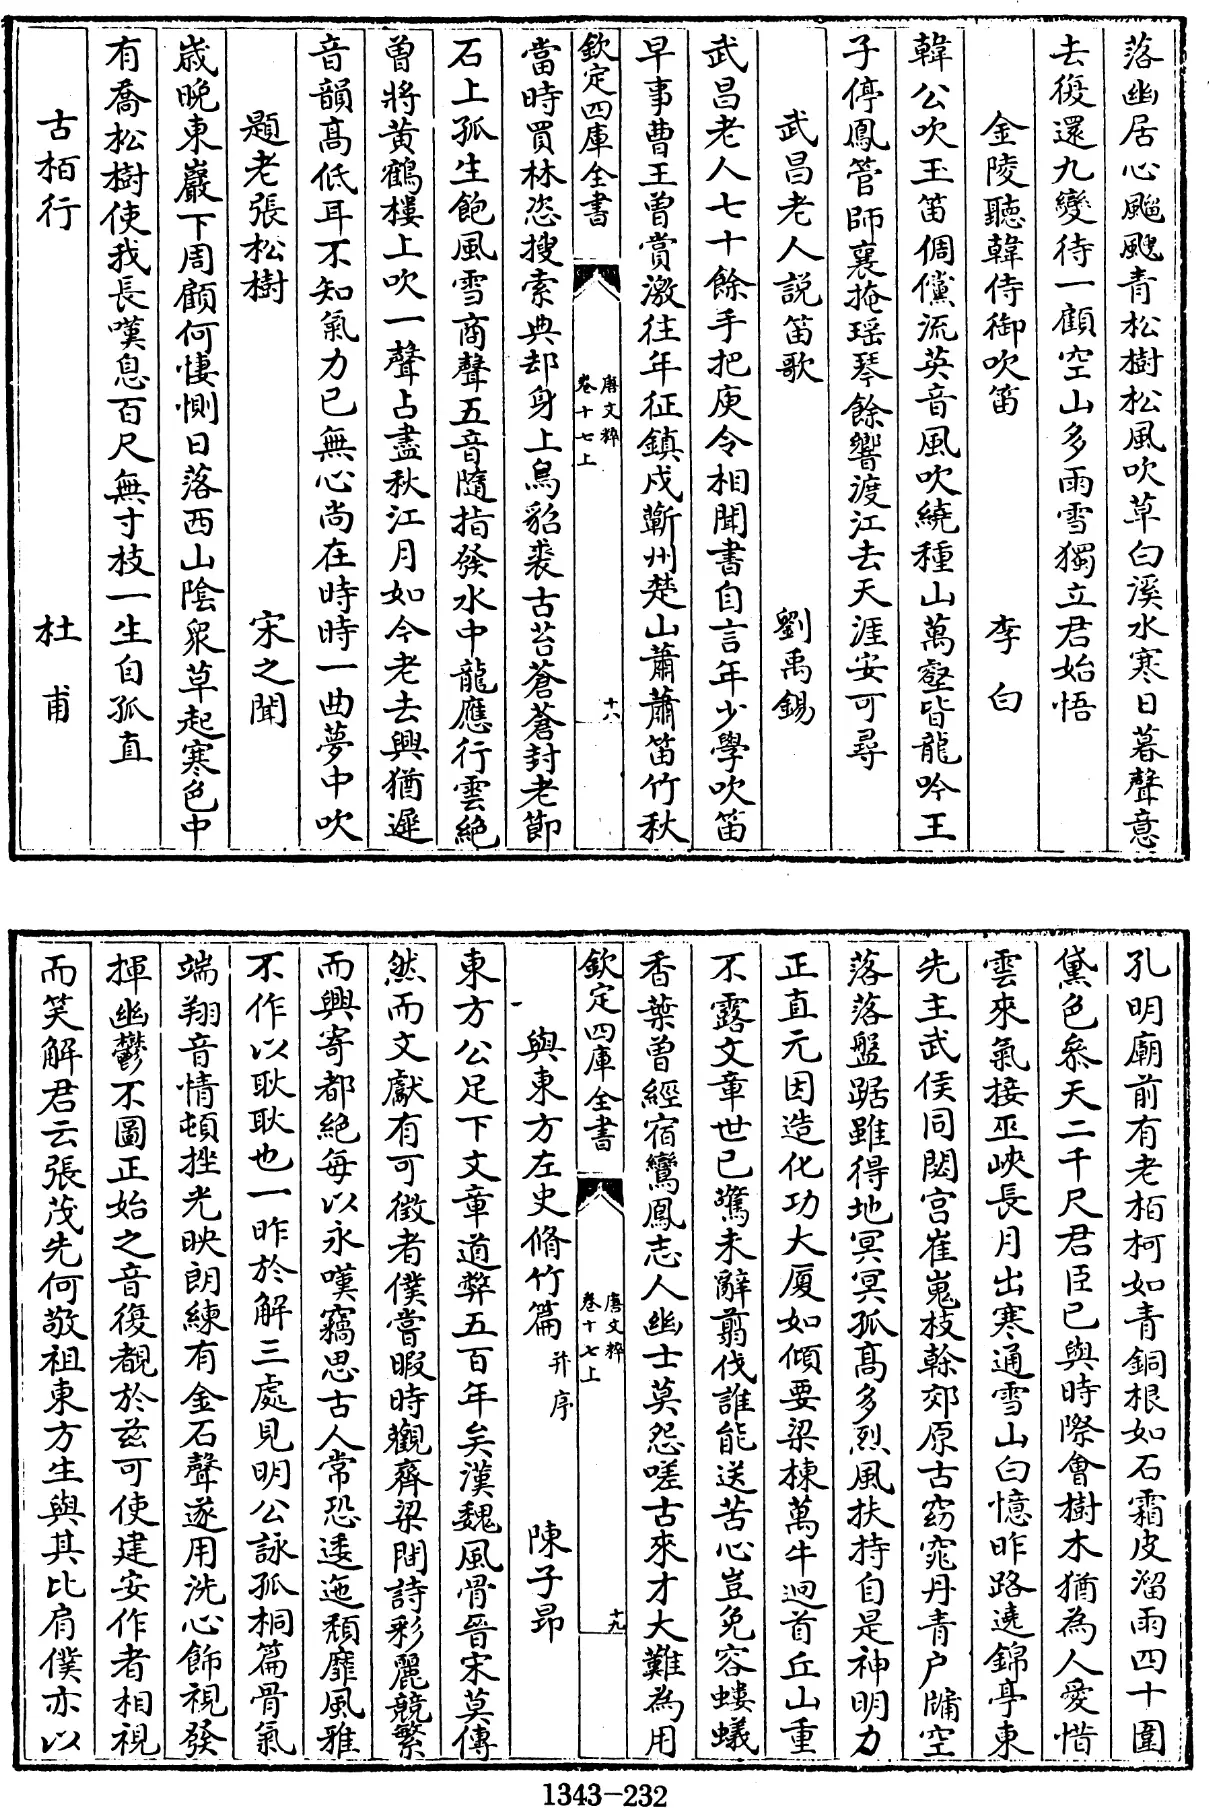 落幽居心飈颸青松樹松風吹草白溪水寒日暮聲意
去復還九變待一顧空山多雨雪獨立君始悟
金陵聽韓侍御吹笛 李白
韓公吹玉笛倜儻流英音風吹繞種山萬壑皆龍吟王
子停鳳管師襄掩瑶琴餘響渡江去天涯安可尋
武昌老人説笛歌 劉禹錫
武昌老人七十餘手把庾令相聞書自言年少學吹笛
早事曹王曾賞激往年征鎮戍蘄州楚山蕭蕭笛竹秋
欽定四庫全書 唐文粹 卷十七上 十八
當時買林恣搜索典却身上烏貂裘古苔蒼蒼封老節
石上孤生飽風雪商聲五音隨指發水中龍應行雲絶
曾將黄鶴樓上吹一聲占盡秋江月如今老去興猶遲
音韻髙低耳不知氣力已無心尚在時時一曲夢中吹
題老張松樹 宋之聞
歳晚東巖下周顧何悽惻日落西山陰衆草起寒色中
有喬松樹使我長嘆息百尺無寸枝一生自孤直
古栢行 杜甫
孔明廟前有老栢柯如青銅根如石霜皮溜雨四十圍
黛色叅天二千尺君臣已與時際會樹木猶為人愛惜
雲來氣接巫峽長月出寒通雪山白憶昨路遶錦亭東
先主武侯同閟宫崔嵬枝幹郊原古窈窕丹青户牖空
落落盤踞雖得地冥冥孤髙多烈風扶持自是神明力
正直元因造化功大厦如傾要梁棟萬牛迴首丘山重
不露文章世已驚未辭翦伐誰能送苦心豈免容螻蟻
香葉曾經宿鸞鳳志人幽士莫怨嗟古來才大難為用
欽定四庫全書 唐文粹 卷十七上 十九
與東方左史脩竹篇并序 陳子昂
東方公足下文章道弊五百年矣漢魏風骨晉宋莫傳
然而文獻有可徴者僕嘗暇時觀齊梁間詩彩麗競繁
而興寄都絶每以永嘆竊思古人常恐逶迤頽靡風雅
不作以耿耿也一昨於解三處見明公詠孤桐篇骨氣
端翔音情頓挫光映朗練有金石聲遂用洗心飾視發
揮幽鬱不圖正始之音復覩於兹可使建安作者相視
而笑解君云張茂先何敬祖東方生與其比肩僕亦以
1343-232